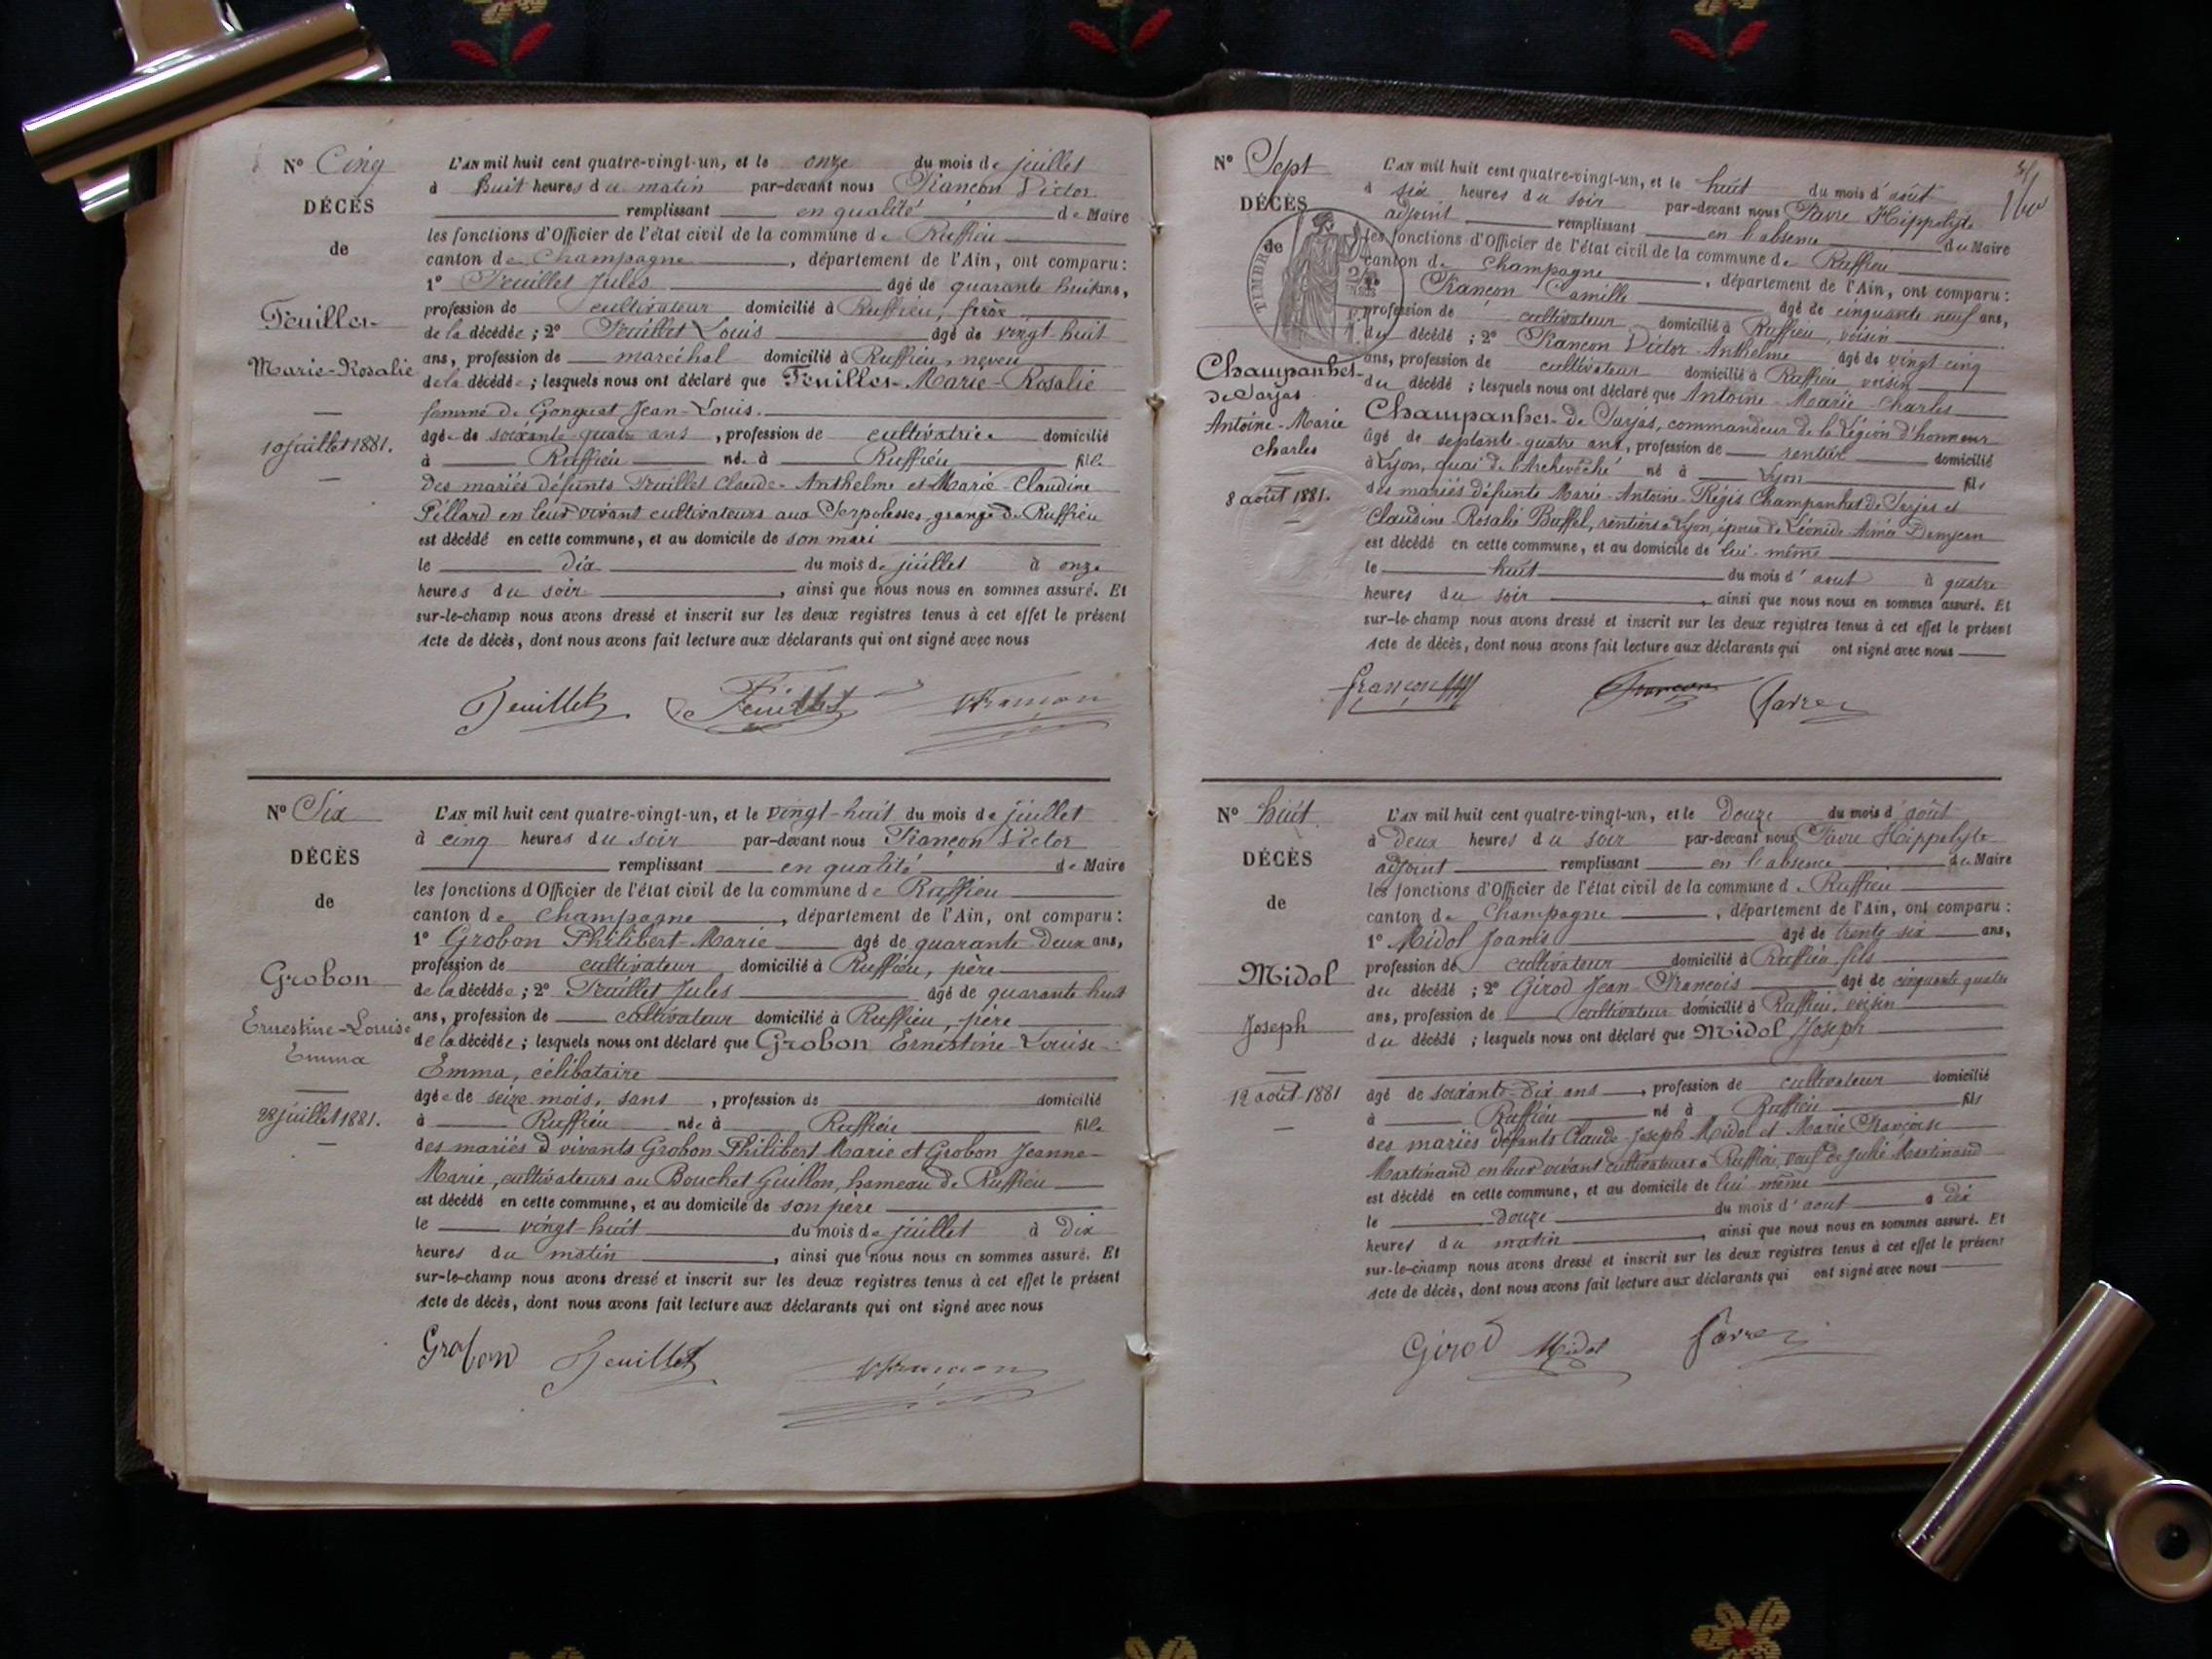 N° Cinq
DÉCÈS
de
Feuillet
Marie-Rosalie
10 juillet 1881.
L'AN mil huit cent quatre-vingt-un, et le onze du mois de juillet
à huit heures du matin par-devant nous Francon Victor
remplissant en qualité de Maire
les fonctions d'Officier de l'état civil de la commune de Ruffieu
canton de Champagne, département de l'Ain, ont comparu:
1° Feuillet Jules âgé de quarante huit ans,
profession de cultivateur domicilié à Ruffieu, frère
de la décédée; 2° Feuillet Louis âgé de vingt-huit
ans, profession de maréchal domicilié à Ruffieu, neveu
de la décédée; lesquels nous ont déclaré que Feuillet Marie-Rosalie
femme de Gonguet Jean-Louis.
âgée de soixante-quatre ans, profession de cultivatrice domicilié
à Ruffieu née à Ruffieu fille
des mariés défunts Feuillet Claude-Anthelme et Marie-Claudine
Pillard en leur vivant cultivateurs aux Serpolesses, grange de Ruffieu
est décédé en cette commune, et au domicile de son mari
le dix du mois de juillet à onze
heures du soir, ainsi que nous nous en sommes assuré. Et
sur-le-champ nous avons dressé et inscrit sur les deux registres tenus à cet effet le présent
Acte de décès, dont nous avons fait lecture aux déclarants qui ont signé avec nous
Feuillet Feuillet VFrançon
N° Six
DÉCÈS
de
Grobon
Ernestine-Louise
Emma
28 juillet 1881.
L'AN mil huit cent quatre-vingt-un, et le vingt-huit du mois de juillet
à cinq heures du soir par-devant nous Francon Victor
remplissant en qualité de Maire
les fonctions d'Officier de l'état civil de la commune de Ruffieu
canton de Champagne, département de l'Ain, ont comparu:
1° Grobon Philibert-Marie âgé de quarante deux ans,
profession de cultivateur domicilié à Ruffieu, père
de la décédée; 2° Feuillet Jules âgé de quarante huit
ans, profession de cultivateur domicilié à Ruffieu, père
de la décédée; lesquels nous ont déclaré que Grobon Ernestine-Louise-
Emma, célibataire
âgée de seize mois, sans, profession de domicilié
à Ruffieu née à Ruffieu fille
des mariés d vivants Grobon Philibert Marie et Grobon Jeanne-
Marie, cultivateurs au Bouchet Guillon, hameau de Ruffieu
est décédé en cette commune, et au domicile de son père
le vingt-huit du mois de juillet à dix
heures du matin, ainsi que nous nous en sommes assuré. Et
sur-le-champ nous avons dressé et inscrit sur les deux registres tenus à cet effet le présent
Acte de décès, dont nous avons fait lecture aux déclarants qui ont signé avec nous
Grobon Feuillet VFrançon
N° Sept
DÉCÈS
de
TIMBRE
Champanhet
de Sarjas
Antoine-Marie
Charles
8 août 1881.
L'AN mil huit cent quatre-vingt-un, et le huit du mois d'août
à six heures du soir par-devant nous Favre Hippolyte
adjoint remplissant en l'absence du Maire
les fonctions d'Officier de l'état civil de la commune de Ruffieu
canton de Champagne, département de l'Ain, ont comparu:
1° Francon Camille âgé de cinquante neuf ans,
profession de cultivateur domicilié à Ruffieu, voisin
du décédé; 2° Francon Victor-Anthelme âgé de vingt-cinq
ans, profession de cultivateur domicilié à Ruffieu voisin
du décédé; lesquels nous ont déclaré que Antoine-Marie-Charles
Champanhet de Sarjas, commandeur de la Légion d'honneur
âgé de septante-quatre ans, profession de rentier domicilié
à Lyon, quai de l'Archevêché né à Lyon fils
des mariés défunts Marie-Antoine-Régis Champanhet de Sarjas et
Claudine-Rosalie Buffel, rentiers à Lyon, époux de Léonide Aimée
est décédé en cette commune, et au domicile de lui-même
le huit du mois d'aout à quatre
heures du soir, ainsi que nous nous en sommes assuré. Et
sur-le-champ nous avons dressé et inscrit sur les deux registres tenus à cet effet le présent
Acte de décès, dont nous avons fait lecture aux déclarants qui ont signé avec nous
françon françon favre
N° huit
DÉCÈS
de
Midol
Joseph
12 août 1881
L'AN mil huit cent quatre-vingt-un, et le douze du mois d'août
à deux heures du soir par-devant nous Favre Hippolyte
adjoint remplissant en l'absence du Maire
les fonctions d'Officier de l'état civil de la commune de Ruffieu
canton de Champagne, département de l'Ain, ont comparu:
1° Midol Joanis âgé de trente six ans,
profession de cultivateur domicilié à Ruffieu fils
du décédé; 2° Girod Jean-François âgé de cinquante quatre
ans, profession de cultivateur domicilié à Ruffieu, voisin
du décédé; lesquels nous ont déclaré que Midol Joseph
âgé de soixante-dix ans, profession de cultivateur domicilié
à Ruffieu né à Ruffieu fils
des mariés défunts Claude-Joseph Midol et Marie Françoise
Martinand en leur vivant cultivateurs à Ruffieu, veuf de Julie Martinand
est décédé en cette commune, et au domicile de lui même
le douze du mois d'aout à dix
heures du matin, ainsi que nous nous en sommes assuré. Et
sur-le-champ nous avons dressé et inscrit sur les deux registres tenus à cet effet le présent
Acte de décès, dont nous avons fait lecture aux déclarants qui ont signé avec nous
Girod Midol favre